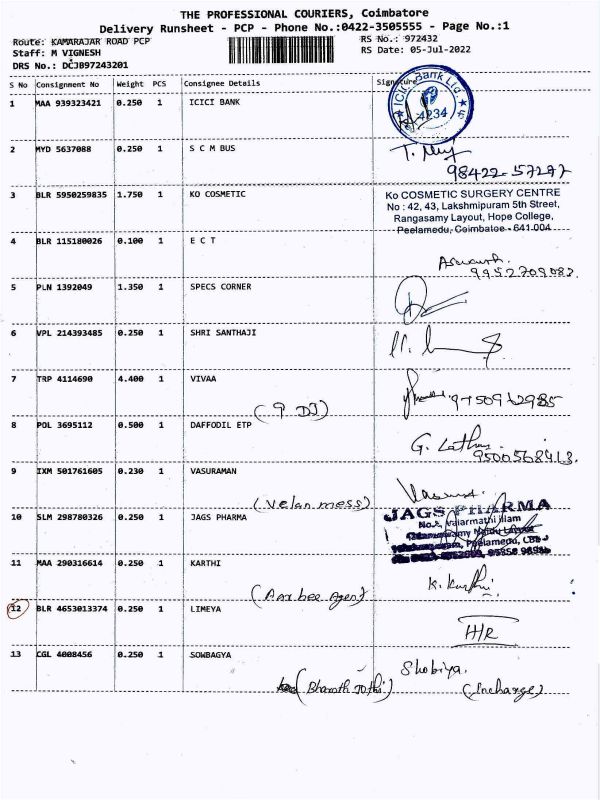 THE PROFESSIONAL COURIERS, Coimbatore
Delivery Runsheet - PCP - Phone No.:0422-3505555 - Page No.:1
Route: KAMARAJAR ROAD PCP
RS No.: 972432
Staff: M VIGNESH
RS Date: 05-Jul-2022
DRS No.: DCJ897243201
S No Consignment No Weight PCS Consignee Details Signature
1 MAA 939323421 0.250 1 ICICI BANK
ICICI Bank Ltd.
4234
2 MYD 5637088 0.250 1 S C M BUS
98422-57247
3 BLR 5950259835 1.750 1 KO COSMETIC
Ko COSMETIC SURGERY CENTRE
No : 42, 43, Lakshmipuram 5th Street,
Rangasamy Layout, Hope College,
Peelamedu, Coimbatoe - 641 004
4 BLR 115180026 0.100 1 E C T
9952709083
5 PLN 1392049 1.350 1 SPECS CORNER
6 VPL 214393485 0.250 1 SHRI SANTHAJI
7 TRP 4114690 4.400 1 VIVAA
9750912985
8 POL 3695112 0.500 1 DAFFODIL ETP
G. Lathu
9500568413.
9 IXM 501761605 0.230 1 VASURAMAN
(Velan mess)
10 SLM 298780326 0.250 1 JAGS PHARMA
JAGS PHARMA
Peelamedu, CBE-
11 MAA 290316614 0.250 1 KARTHI
K. Karthi
(Aarbee Agen)
12 BLR 4653013374 0.250 1 LIMEYA
H/R
13 CGL 4008456 0.250 1 SOWBAGYA
Shobiya.
(Bharath Jothi)
(Incharge)